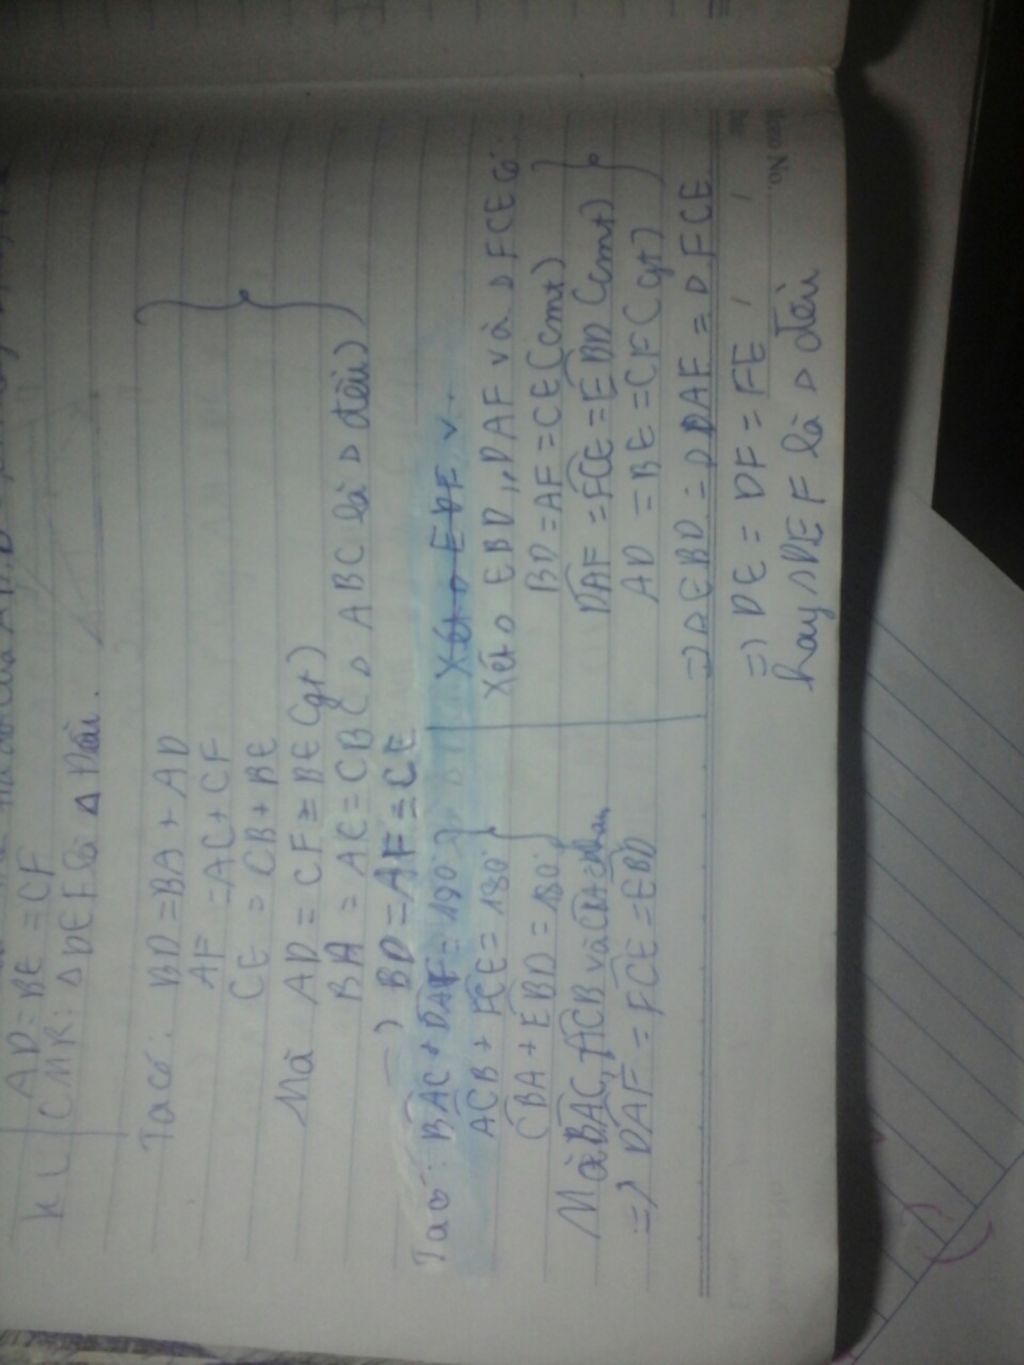 AD = BE = CF
KL CMR: Δ DEF là Δ Đều.
Ta có: BD = BA + AD
AF = AC + CF
CE = CB + BE
Mà AD = CF = BE (gt)
BA = AC = CB (Δ ABC là Δ đều)
=) BD = AF = CE
Ta có: BAC + DAF = 190°
ACB + FCE = 180°
CBA + EBD = 180°
Mà BAC, ACB và CBA
=) DAF = FCE = EBD
Xét Δ EDF v
Xét Δ EBD, DAF và Δ FCE có:
BD = AF = CE (cmt)
DAF = FCE = EBD (cmt)
AD = BE = CF (gt)
=) Δ EBD = Δ DAF = Δ FCE
=) DE = DF = FE
hay Δ DEF là Δ đều
No.